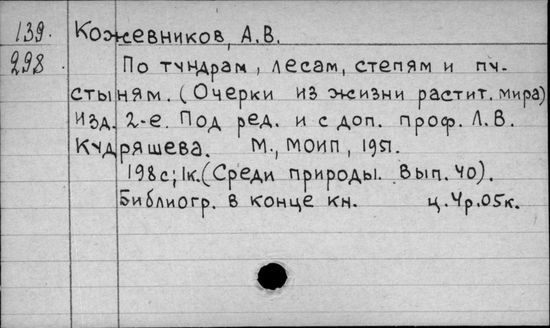 139. Кожевников, А.В.
298. По тундрам, лесам, степям и пу-
стыням. (Очерки из жизни растит. мира)
изд. 2-е. Под ред. и с доп. проф. Л.В.
Кудряшева. М., МОИП, 1951.
198с; 1к. (Среди природы. Вып. 40).
Библиогр. в конце кн. ц. 4р. 05к.